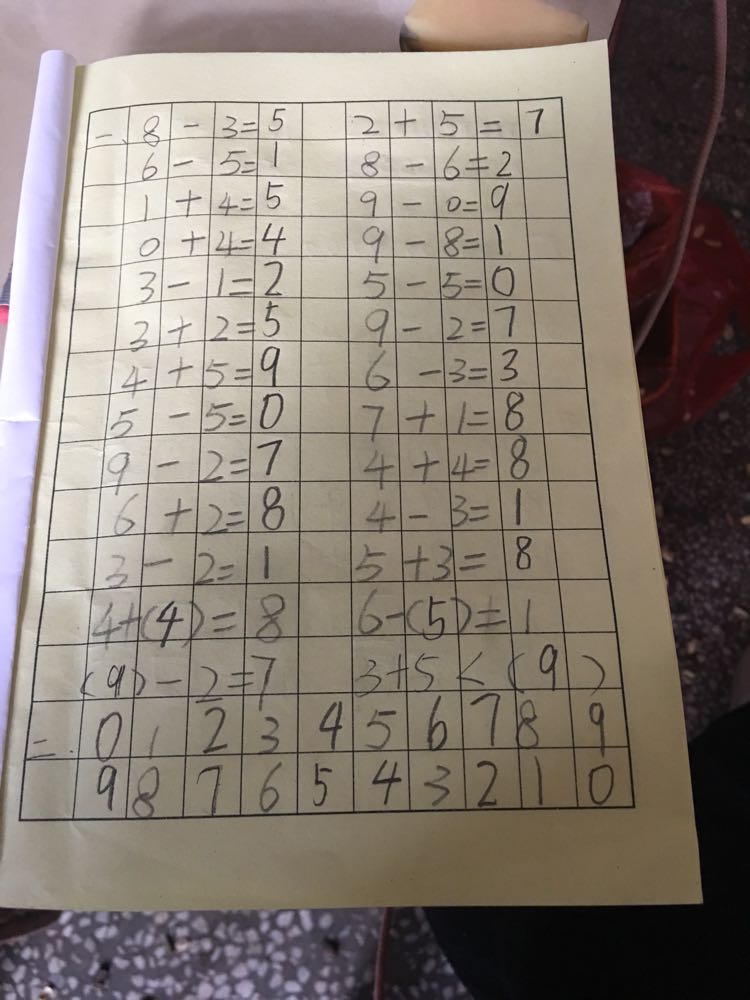 一. 8 - 3 = 5 2 + 5 = 7
6 - 5 = 1 8 - 6 = 2
1 + 4 = 5 9 - 0 = 9
0 + 4 = 4 9 - 8 = 1
3 - 1 = 2 5 - 5 = 0
3 + 2 = 5 9 - 2 = 7
4 + 5 = 9 6 - 3 = 3
5 - 5 = 0 7 + 1 = 8
9 - 2 = 7 4 + 4 = 8
6 + 2 = 8 4 - 3 = 1
3 - 2 = 1 5 + 3 = 8
4 + (4) = 8 6 - (5) = 1
(9) - 2 = 7 3 + 5 < (9)
二. 0 1 2 3 4 5 6 7 8 9
9 8 7 6 5 4 3 2 1 0